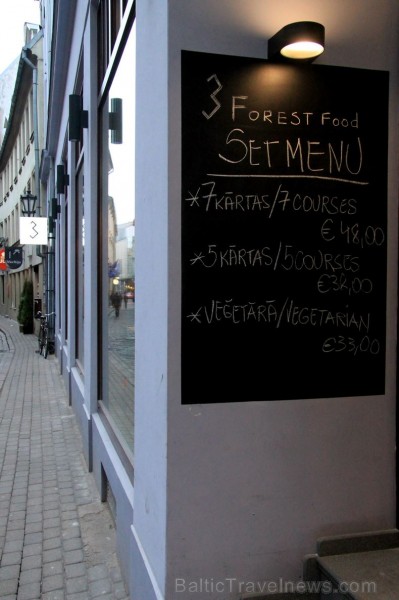 3 FOREST FOOD
SET MENU
*7 KĀRTAS/7 COURSES
€ 48,00
*5 KĀRTAS/5 COURSES
*VEĢETĀRĀ/VEGETARIAN
€33,00
3
BalticTravelnews.com